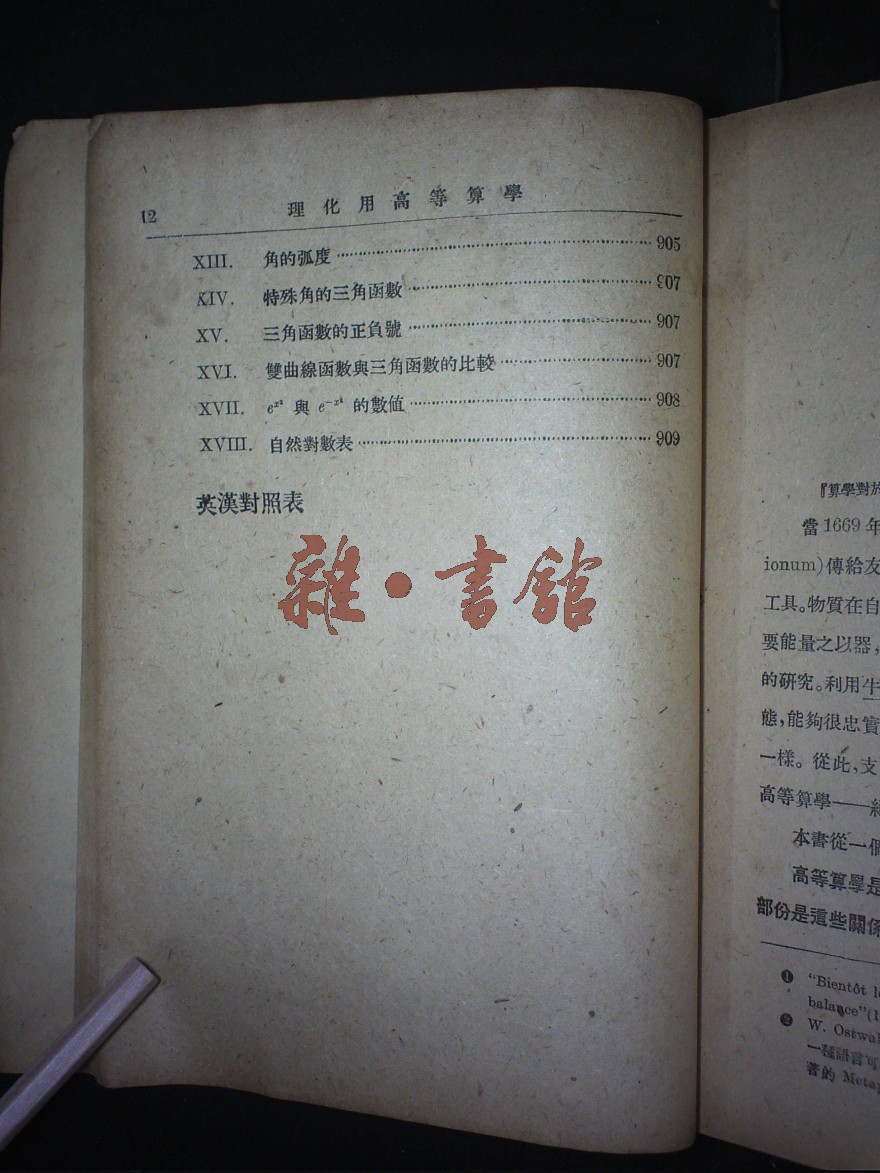 12 理化用高等算學
XIII. 角的弧度 905
XIV. 特殊角的三角函數 907
XV. 三角函數的正負號 907
XVI. 雙曲線函數與三角函數的比較 907
XVII. eˣ² 與 e⁻ˣ² 的數值 908
XVIII. 自然對數表 909
英漢對照表
雜·書館
『算學對於
當1669年
ionum)傳給友
工具。物質在自
要能量之以器,
的研究。利用牛
態,能夠很忠實
一樣。從此,支
高等算學——
本書從一個
高等算學是
部份是這些關係
❶ "Bientôt
balance"(1
❷ W. Ostwal
一種語言可
著的 Metap